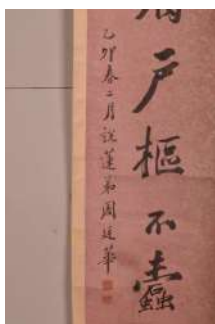 户樞不蠹
乙卯春二月說蓮弟周廷華